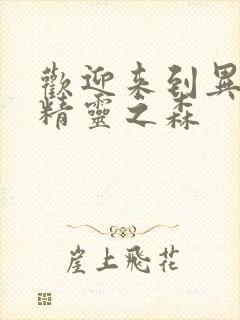 歡迎来到異
精靈之森
崖上飛花